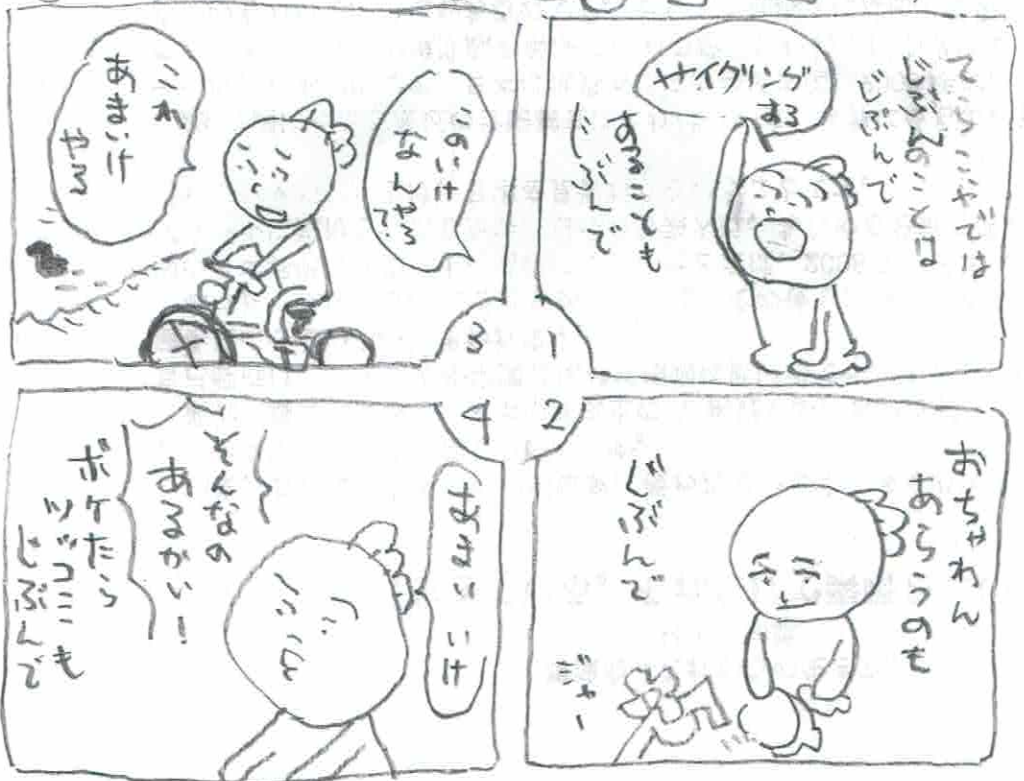 てらこやでは
じぶんのことは
じぶんで
サイクリング
する
することも
じぶんで
1
2
おちゃわん
あらうのも
じぶんで
ジャー
3
このいけ
なんやろ
?
これ
あまいけ
やろ
4
あまい いけ
そんなの
あるかい!
ボケたら
ツッコミも
じぶんで